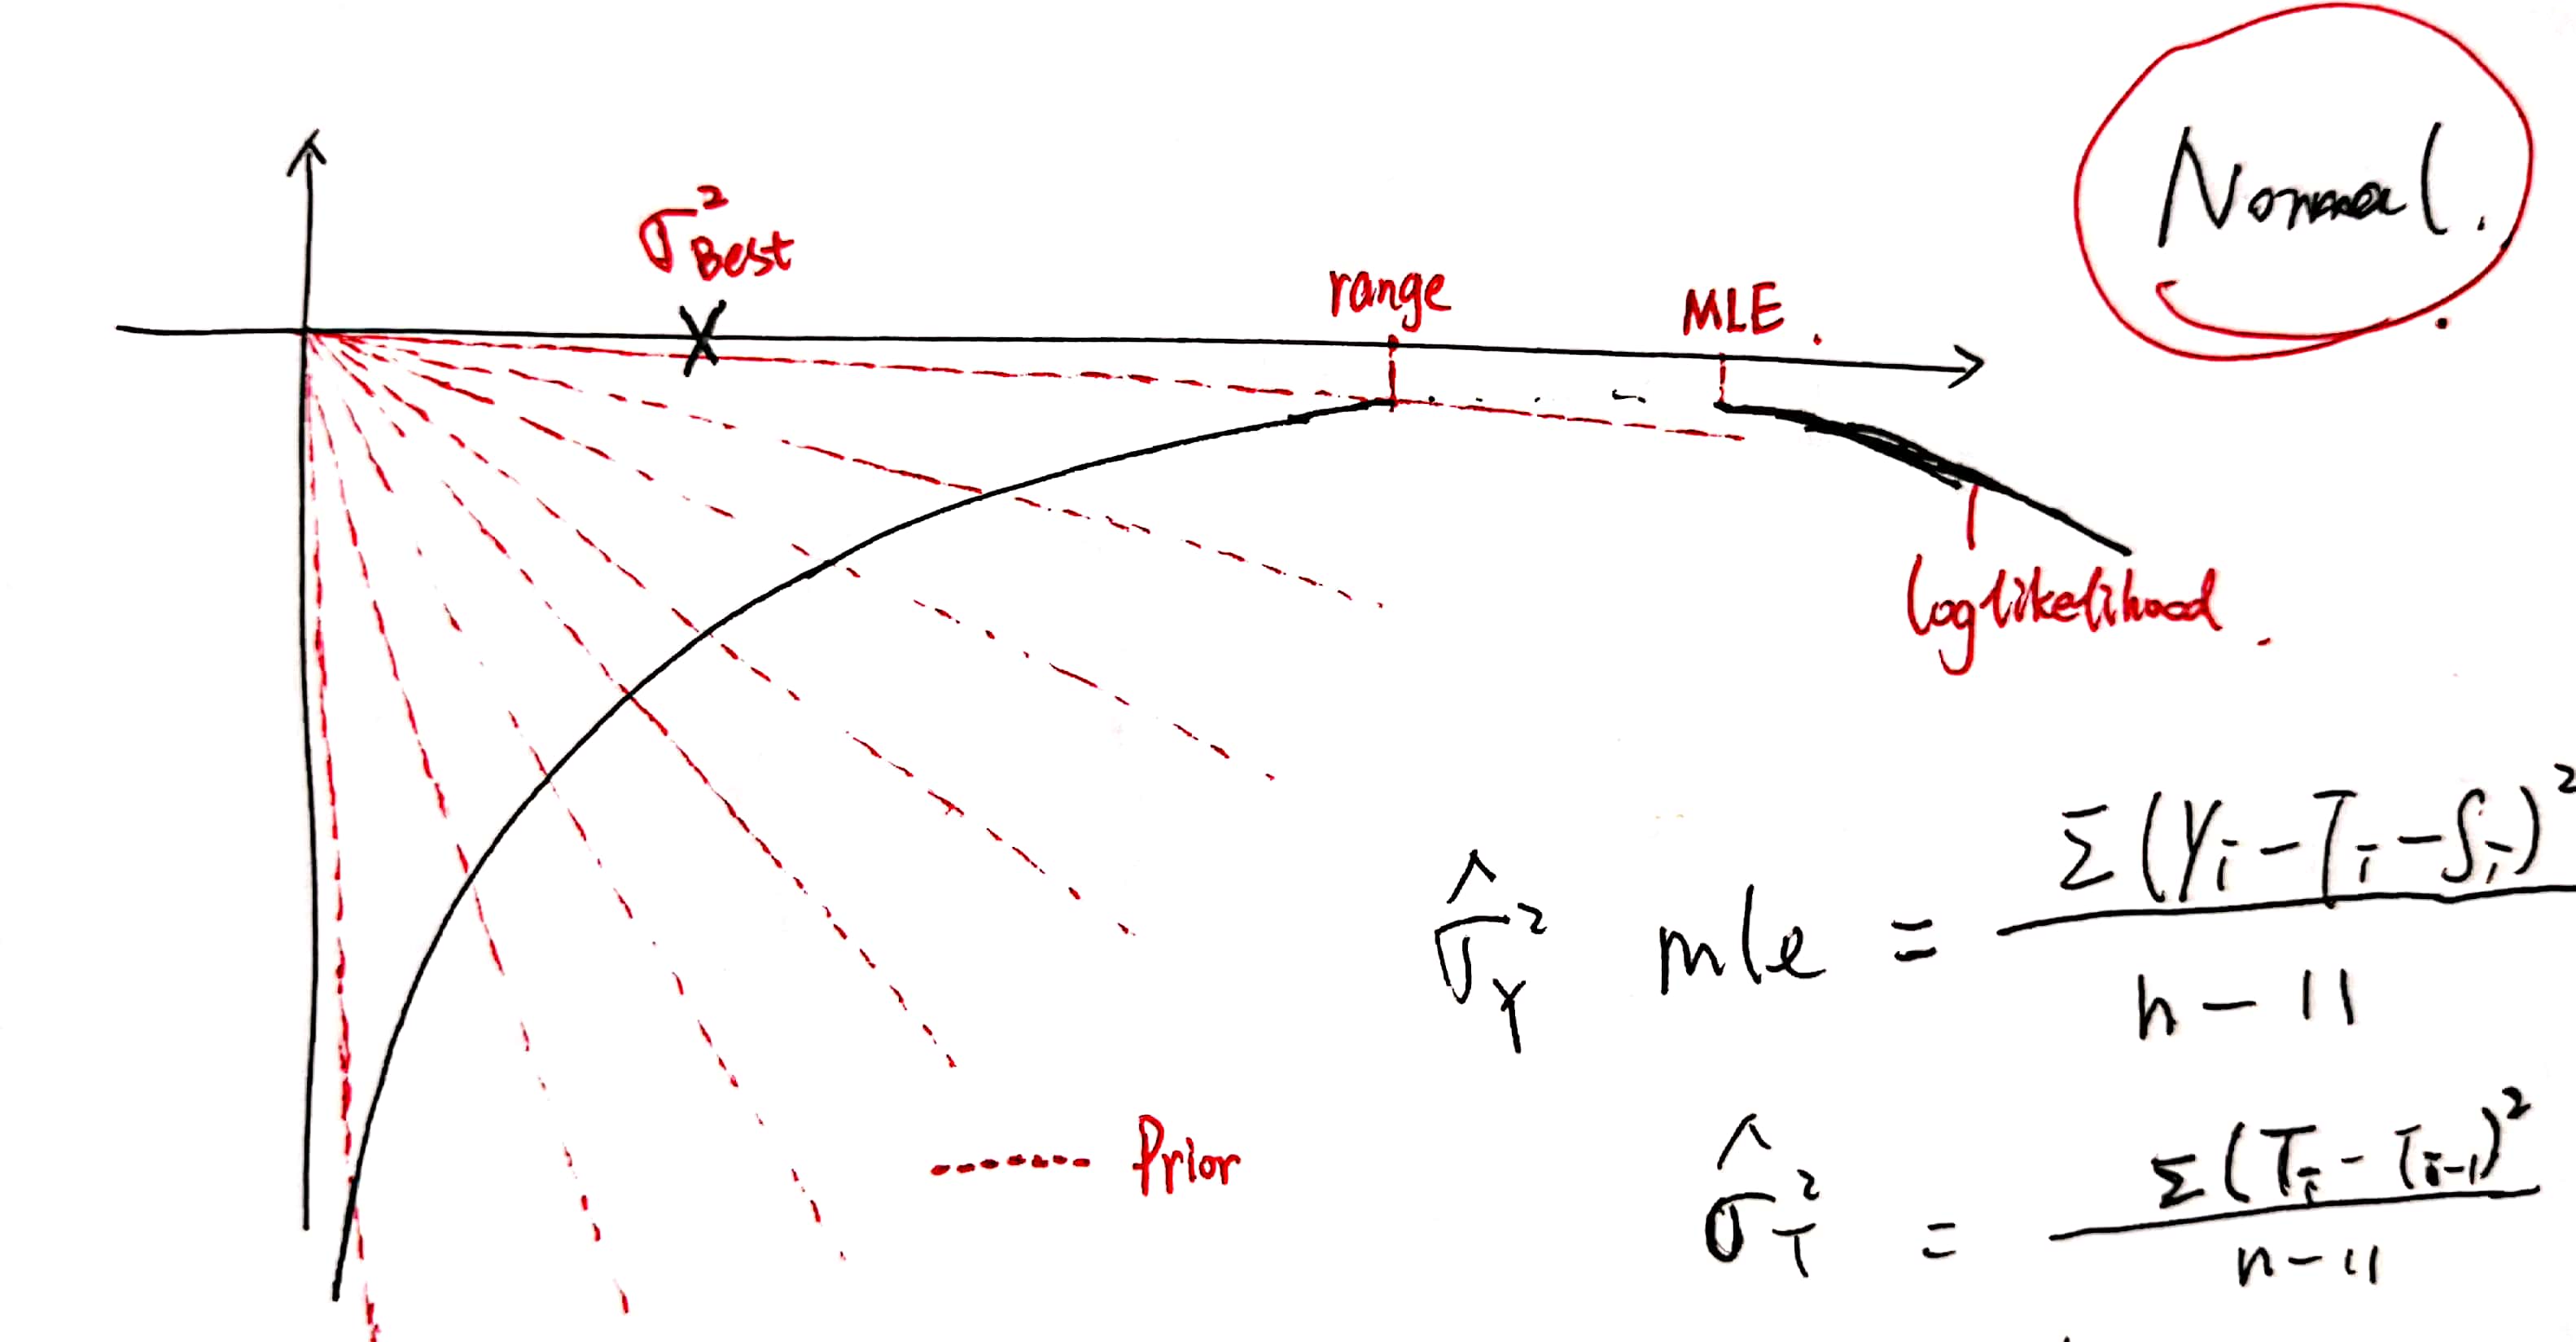 Normal.
σ²Best
range
MLE.
loglikelihood.
σ̂²Y mle = Σ(Yi - Ti - Si)² / n - 11
Prior
σ̂²T = Σ(Ti - Ti-1)² / n - 11